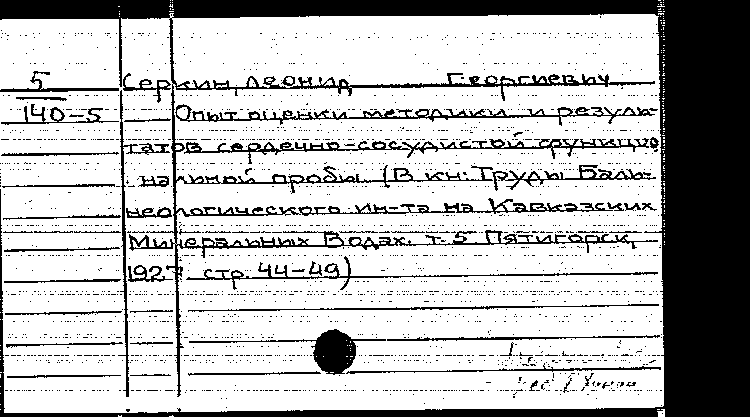 5 Серкин, Леонид Георгиевич
140-5 Опыт оценки методики и резуль-
татов сердечно-сосудистой функцио
нальной пробы. (В кн: Труды Баль-
неологического ин-та на Кавказских
Минеральных Водах. т. 5 Пятигорск,
1927 стр. 44-49)